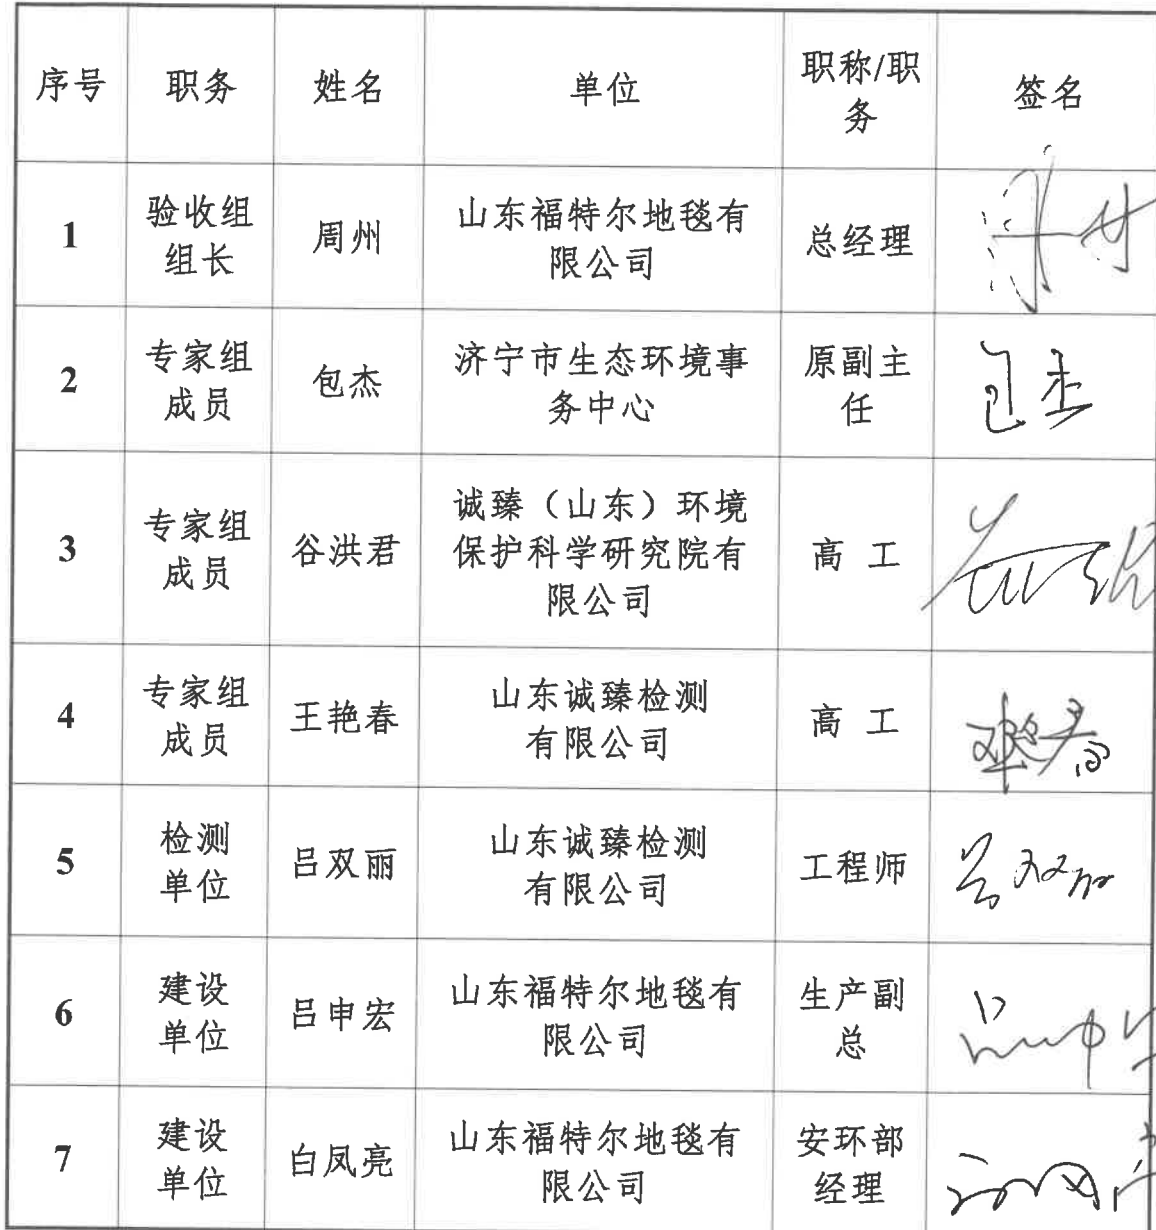 序号 职务 姓名 单位 职称/职务 签名
1 验收组组长 周州 山东福特尔地毯有限公司 总经理
2 专家组成员 包杰 济宁市生态环境事务中心 原副主任 包杰
3 专家组成员 谷洪君 诚臻（山东）环境保护科学研究院有限公司 高 工
4 专家组成员 王艳春 山东诚臻检测有限公司 高 工
5 检测单位 吕双丽 山东诚臻检测有限公司 工程师 吕双丽
6 建设单位 吕申宏 山东福特尔地毯有限公司 生产副总
7 建设单位 白凤亮 山东福特尔地毯有限公司 安环部经理